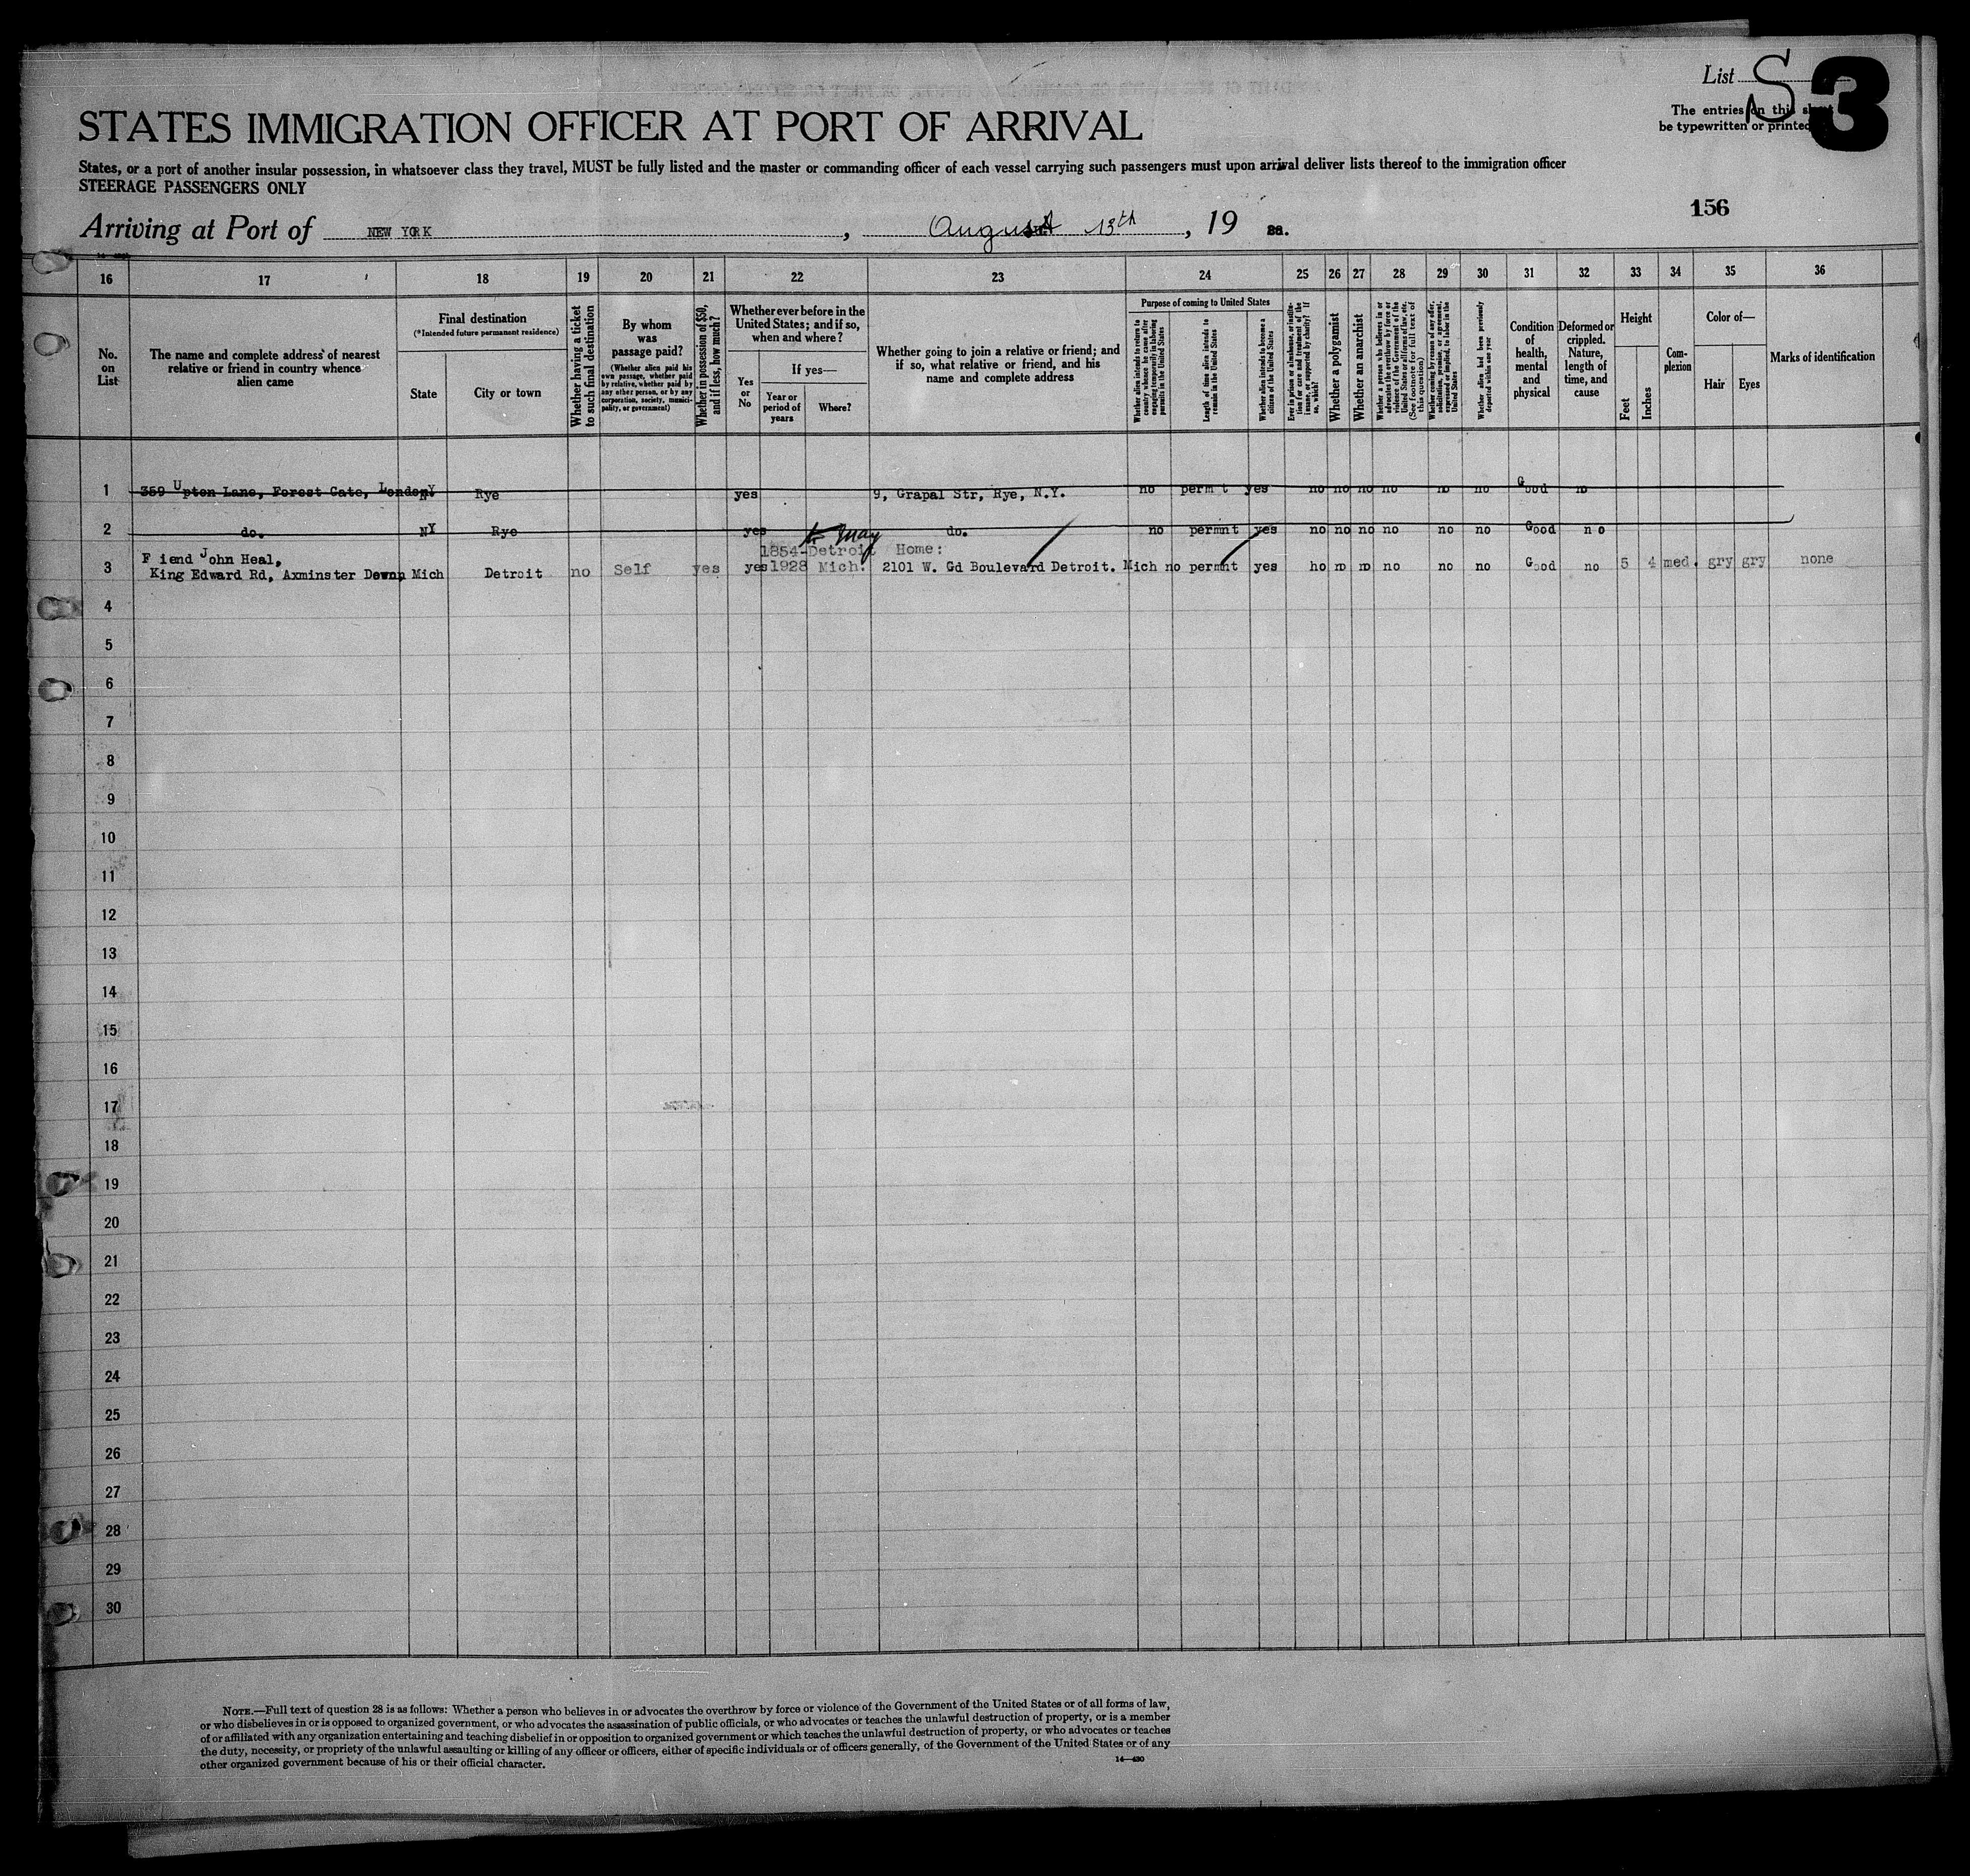 List S 3
The entries on this
be typewritten or printed
STATES IMMIGRATION OFFICER AT PORT OF ARRIVAL
States, or a port of another insular possession, in whatsoever class they travel, MUST be fully listed and the master or commanding officer of each vessel carrying such passengers must upon arrival deliver lists thereof to the immigration officer
STEERAGE PASSENGERS ONLY
156
Arriving at Port of NEW YORK, August 13th, 19
16 17 18 19 20 21 22 23 24 25 26 27 28 29 30 31 32 33 34 35 36
No. on List
The name and complete address of nearest relative or friend in country whence alien came
Final destination
(*Intended future permanent residence)
State
City or town
Whether having a ticket to such final destination
By whom was passage paid?
(Whether alien paid his own passage, whether paid by relative, whether paid by any other person, or by any corporation, society, municipality, or government)
Whether in possession of $50, and if less, how much?
Whether ever before in the United States; and if so, when and where?
Yes or No
If yes—
Year or period of years
Where?
Whether going to join a relative or friend; and if so, what relative or friend, and his name and complete address
Purpose of coming to United States
Whether alien intends to return to country whence he came after engaging temporarily in laboring pursuits in the United States
Length of time alien intends to remain in the United States
Whether alien intends to become a citizen of the United States
Ever in prison or almshouse, or institution for care and treatment of the insane, or supported by charity? If so, which?
Whether a polygamist
Whether an anarchist
Whether a person who believes in or advocates the overthrow by force or violence of the Government of the United States or all forms of law, etc. (See footnote for full text of this question)
Whether coming by reason of any offer, solicitation, promise, or agreement, expressed or implied, to labor in the United States
Whether alien had been previously deported within one year
Condition of health, mental and physical
Deformed or crippled. Nature, length of time, and cause
Height
Feet
Inches
Com-plexion
Color of—
Hair
Eyes
Marks of identification
1 359 Upton Lane, Forest Gate, London. NY Rye yes 9, Grapal Str, Rye, N.Y. no permt yes no no no no no no Good no
2 do. NY Rye yes do. no permnt yes no no no no no no Good no
May
Fiend John Heal, 1854- Detroit Home:
3 King Edward Rd, Axminster Devon Mich Detroit no Self yes yes 1928 Mich. 2101 W. Gd Boulevard Detroit. Mich no permnt yes ho no no no no no Good no 5 4 med. gry gry none
4
5
6
7
8
9
10
11
12
13
14
15
16
17
18
19
20
21
22
23
24
25
26
27
28
29
30
NOTE.—Full text of question 28 is as follows: Whether a person who believes in or advocates the overthrow by force or violence of the Government of the United States or of all forms of law,
or who disbelieves in or is opposed to organized government, or who advocates the assassination of public officials, or who advocates or teaches the unlawful destruction of property, or is a member
of or affiliated with any organization entertaining and teaching disbelief in or opposition to organized government or which teaches the unlawful destruction of property, or who advocates or teaches
the duty, necessity, or propriety of the unlawful assaulting or killing of any officer or officers, either of specific individuals or of officers generally, of the Government of the United States or of any
other organized government because of his or their official character.
14—430